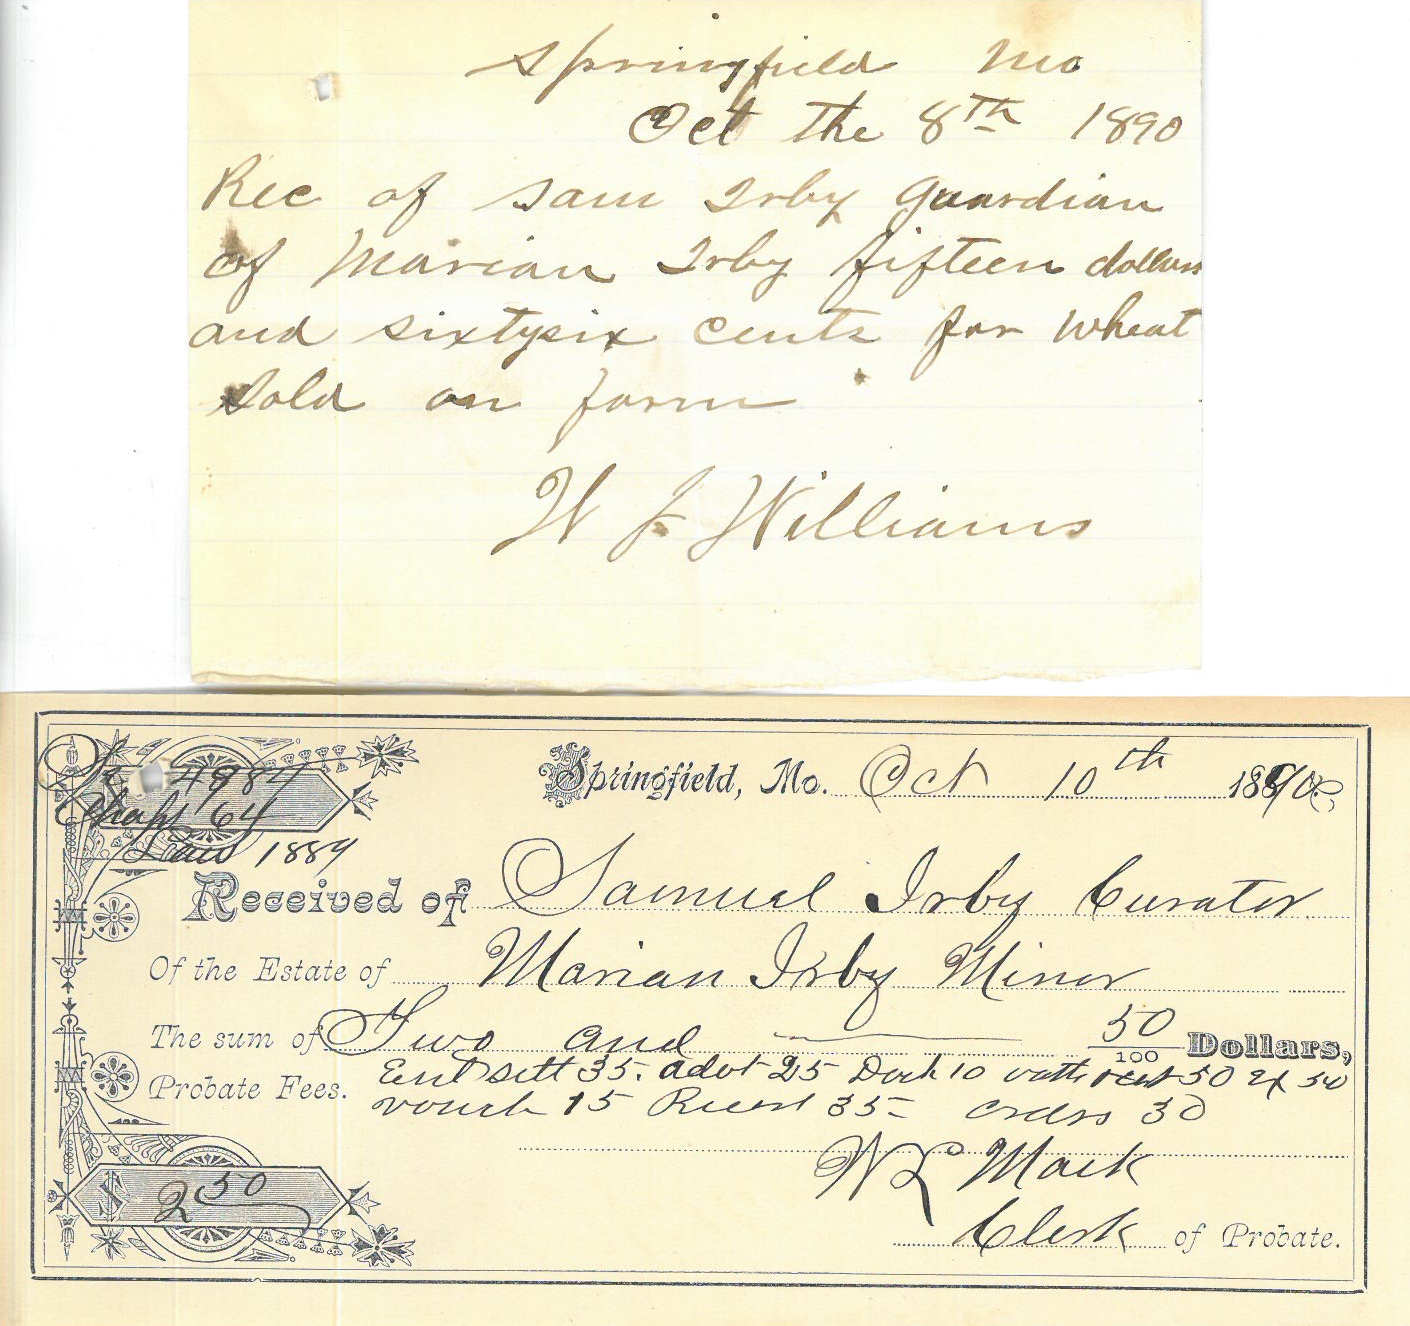 Springfield Mo
Oct the 8th 1890
Rec of Sam Irby Guardian
of Marian Irby fifteen dollars
and sixtysix cents for Wheat
sold on farm
W J Williams
4984
Chap 64
Law 1889
Springfield, Mo. Oct 10th 1890
Received of Samuel Irby Curator
Of the Estate of Marian Irby Minor
The sum of Two and 50/100 Dollars,
Probate Fees. Ent sett 35. advt 25 Dock 10 50 ex 50
vouch 15 Record 35 orders 30
W L Mack
Clerk of Probate.
$ 2 50